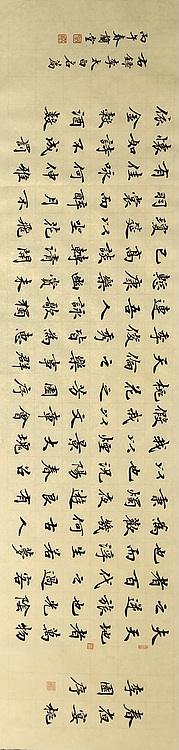 春夜宴桃
李園序
夫天地者萬物
之逆旅也光陰
者百代之過客
也而浮生若夢
為歡幾何古人
秉燭夜遊良有
以也況陽春召
我以煙景大塊
假我以文章會
桃李之芳園序
天倫之樂事群
季俊秀皆為惠
連吾人詠歌獨
慙康樂幽賞未
已高談轉清開
瓊筵以坐花飛
羽觴而醉月不
有佳詠何伸雅
懷如詩不成罰
依金谷酒數
右錄李太白名篇
丙午春蘭堂